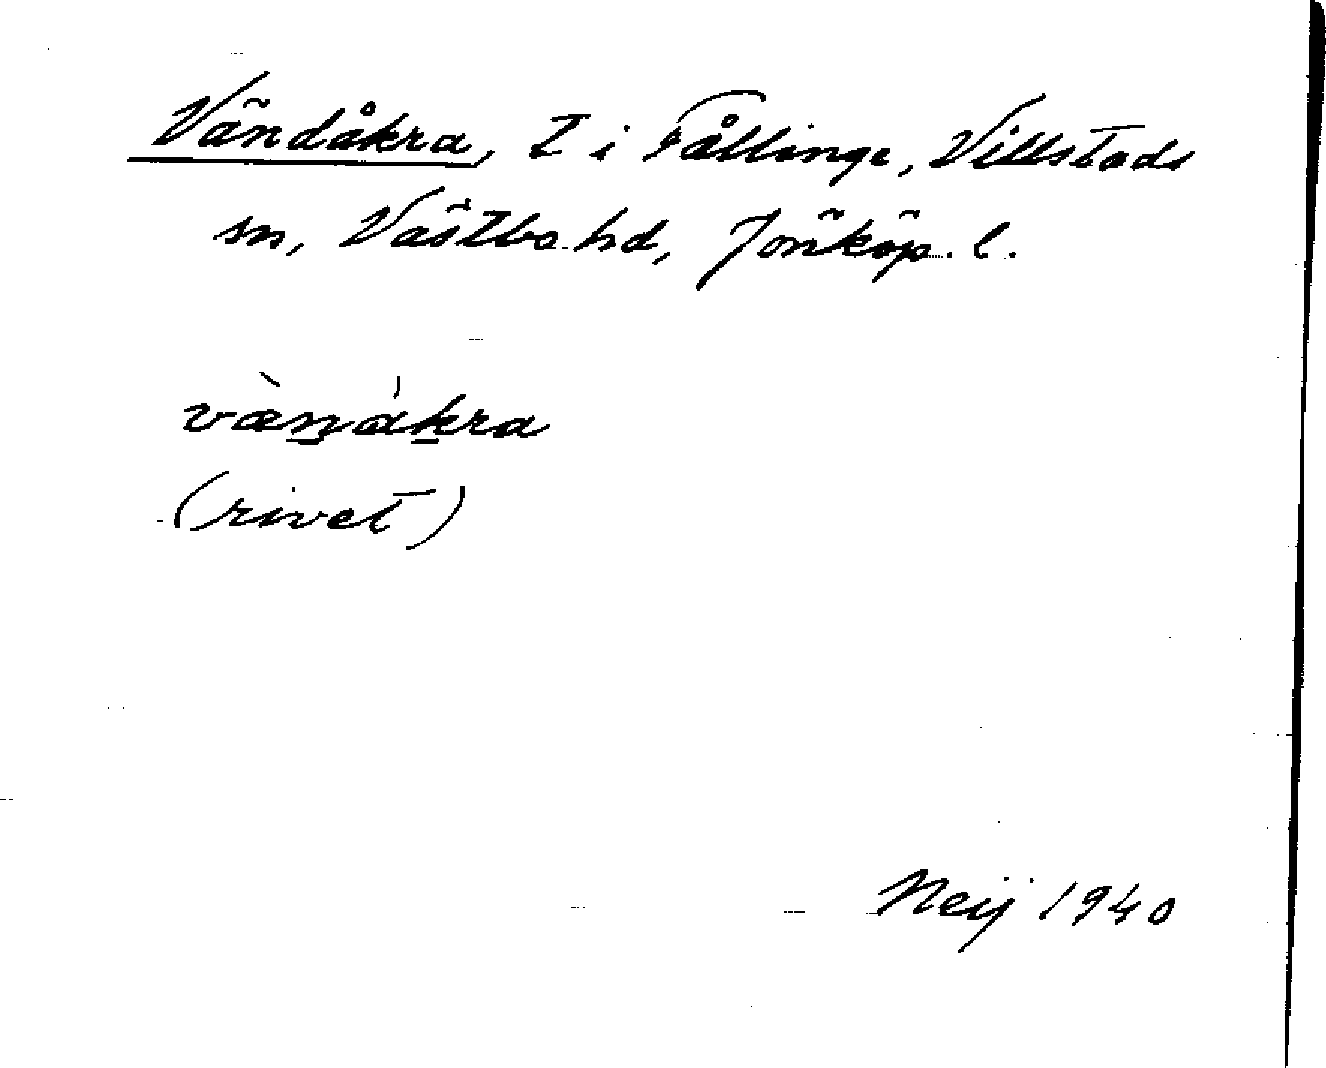 Vändåkra, t i Fållinge, Villstads
sn, Västbo hd, Jönköp. l.
væ̀nákra
(rivet)
Neij 1940